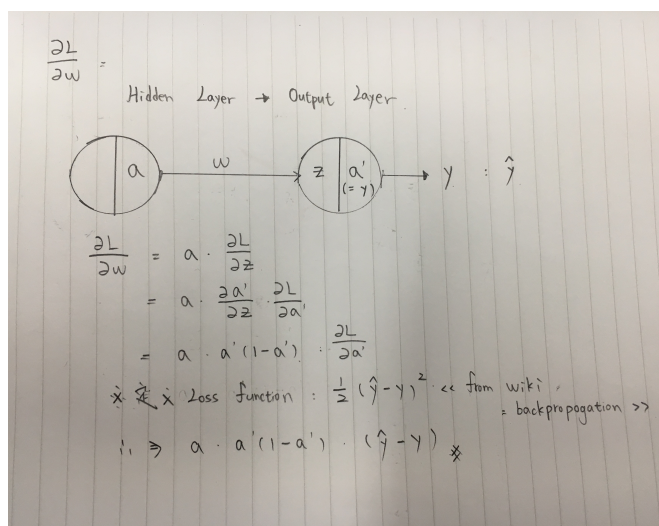 ∂L/∂w =
Hidden Layer → Output Layer
a w z a' (= y) → y : ŷ
∂L/∂w = a · ∂L/∂z
= a · ∂a'/∂z · ∂L/∂a'
= a · a'(1-a') · ∂L/∂a'
Loss function : ½ (ŷ-y)² << from wiki
= backpropogation >>
∴ ⇒ a · a'(1-a') · (ŷ-y)